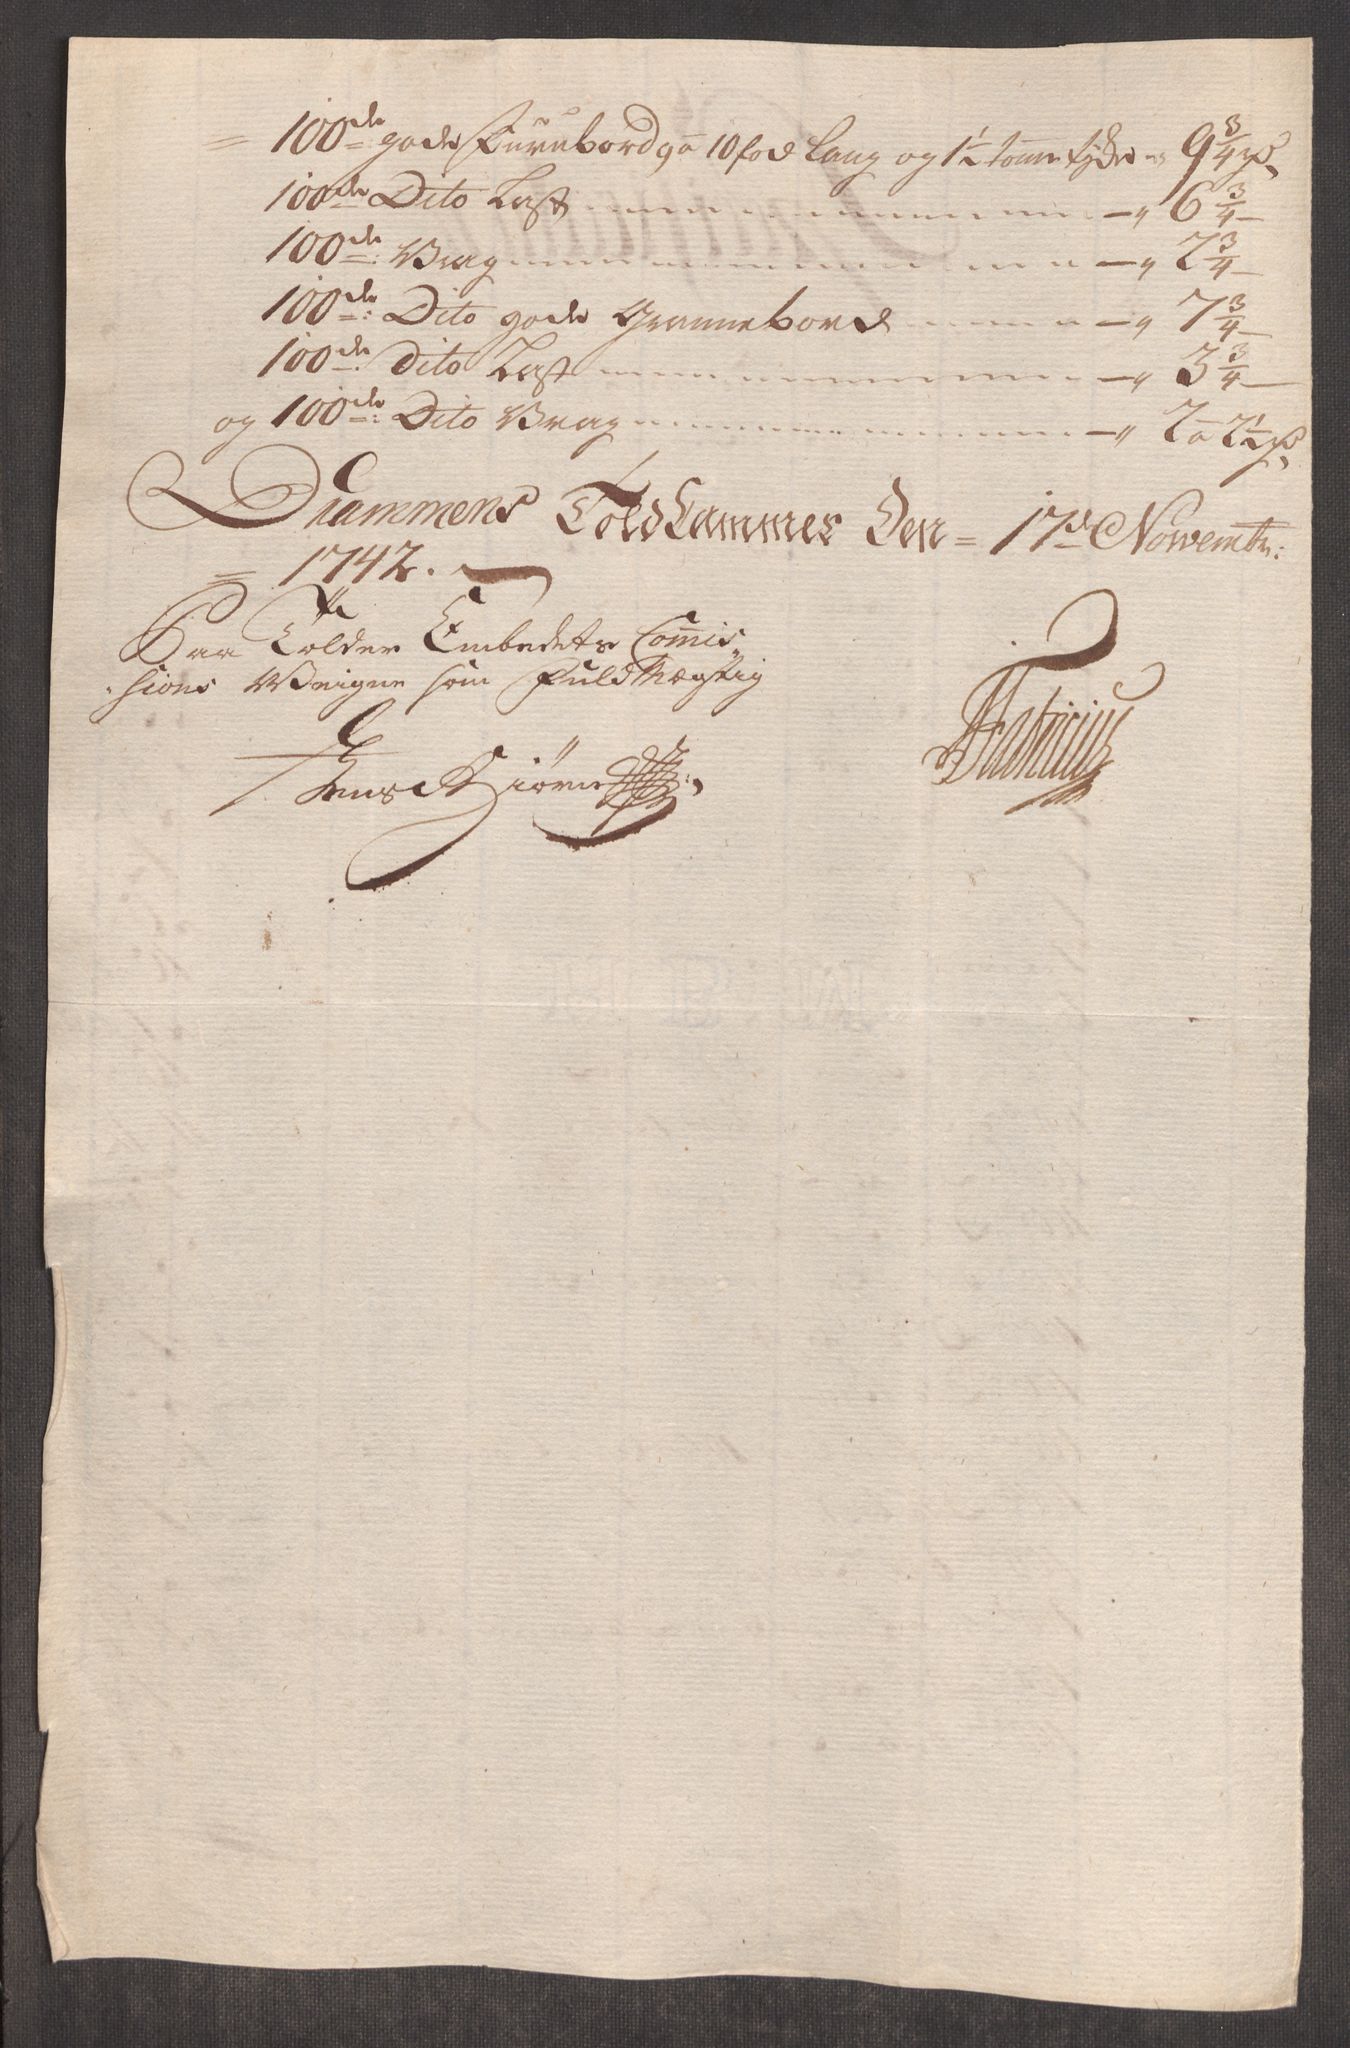 = 100de gode Furubord 9 a 10 fod Lang og 1½ tomme tyke " 9¾ rd
100de Dito Last " 6¾
100de: Vrag " 2¾
100de: Dito gode Grannebord " 7¾
100de. Dito Last " 3¾
og 100de: Dito Vrag " 2 a 2½ rd
Drammens Told Cammer Den = 17de Novembr:
= 1742.
Paa Tolder Embedets Commis-
sions Veigne som Fuldmægtig
Jens Kiørn
Fabricius